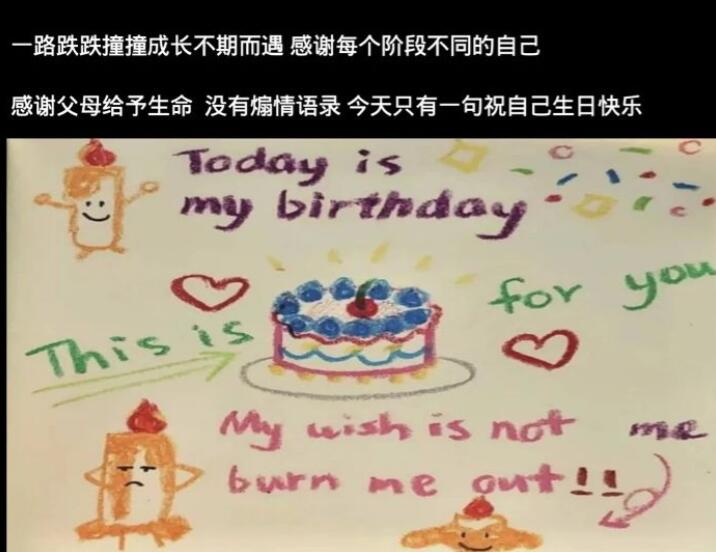 一路跌跌撞撞成长不期而遇 感谢每个阶段不同的自己
感谢父母给予生命 没有煽情语录 今天只有一句祝自己生日快乐
Today is
my birthday
for you
This is
My wish is not me
burn me out!!